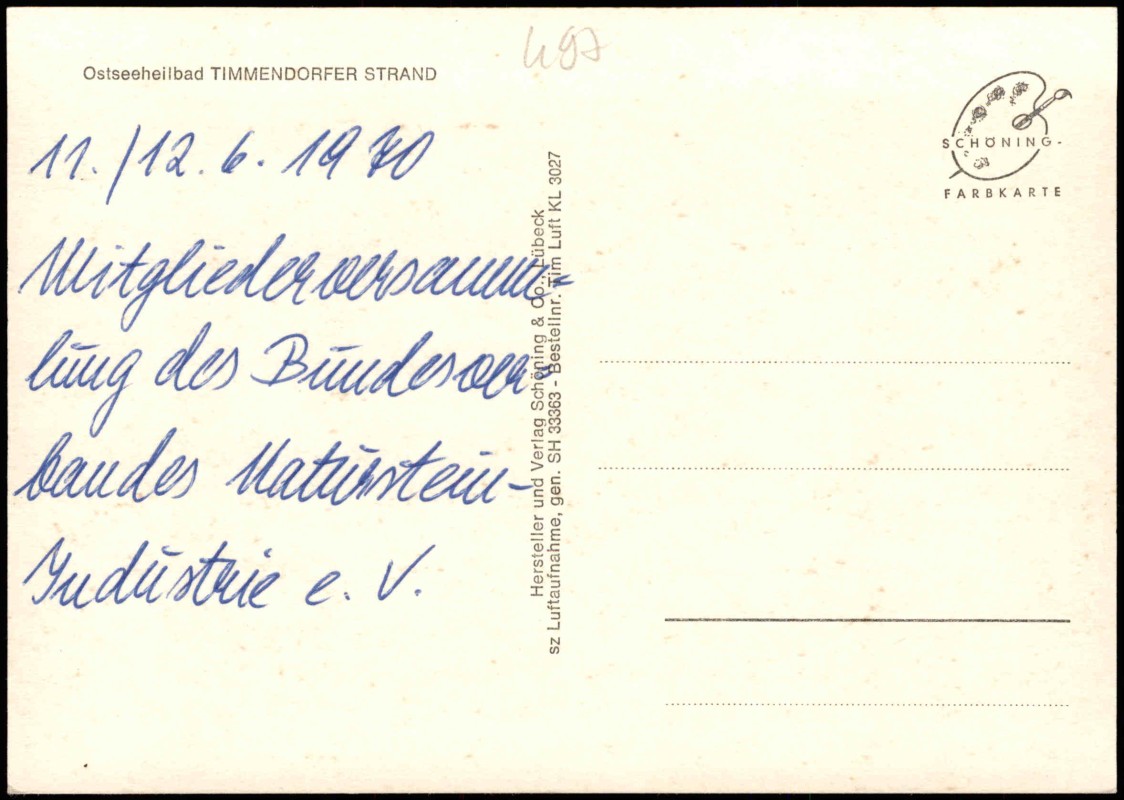 497
Ostseeheilbad TIMMENDORFER STRAND
11./12.6.1970
Mitgliederversamm-
lung des Bundesver-
bandes Naturstein-
Industrie e. V.
Hersteller und Verlag Schöning & Co., Lübeck
sz Luftaufnahme, gen. SH 33363 - Bestellnr. Tim Luft KL 3027
SCHÖNING-
FARBKARTE